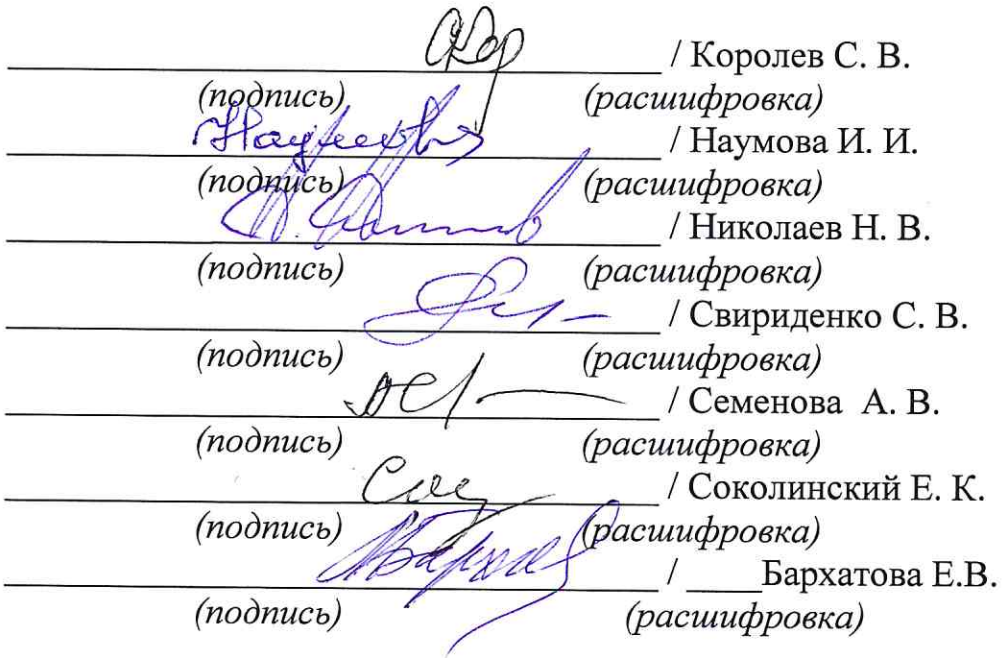 / Королев С. В.
(подпись) (расшифровка)
Наумова / Наумова И. И.
(подпись) (расшифровка)
/ Николаев Н. В.
(подпись) (расшифровка)
/ Свириденко С. В.
(подпись) (расшифровка)
/ Семенова А. В.
(подпись) (расшифровка)
/ Соколинский Е. К.
(подпись) (расшифровка)
/ ____Бархатова Е.В.
(подпись) (расшифровка)